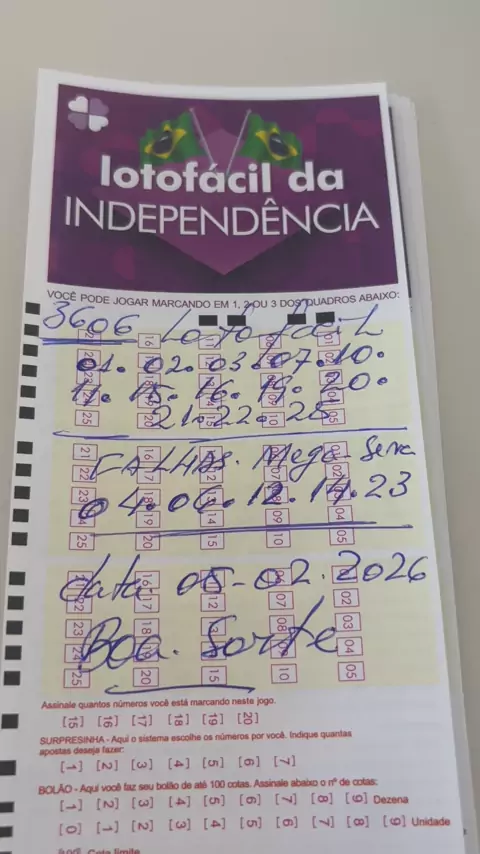 lotofácil da
INDEPENDÊNCIA
VOCÊ PODE JOGAR MARCANDO EM 1, 2 OU 3 DOS QUADROS ABAIXO:
3606 Loto fácil
01. 02. 03. 07. 10.
11. 15. 16. 19. 20.
21. 22. 25
FALHAS. Mega-Sena
04. 06. 12. 14. 23
data 05-02.2026
Boa. Sorte
Assinale quantos números você está marcando neste jogo.
[15] [16] [17] [18] [19] [20]
SURPRESINHA - Aqui o sistema escolhe os números por você. Indique quantas
apostas deseja fazer:
[1] [2] [3] [4] [5] [6] [7]
BOLÃO - Aqui você faz seu bolão de até 100 cotas. Assinale abaixo o nº de cotas:
[1] [2] [3] [4] [5] [6] [7] [8] [9] Dezena
[0] [1] [2] [3] [4] [5] [6] [7] [8] [9] Unidade